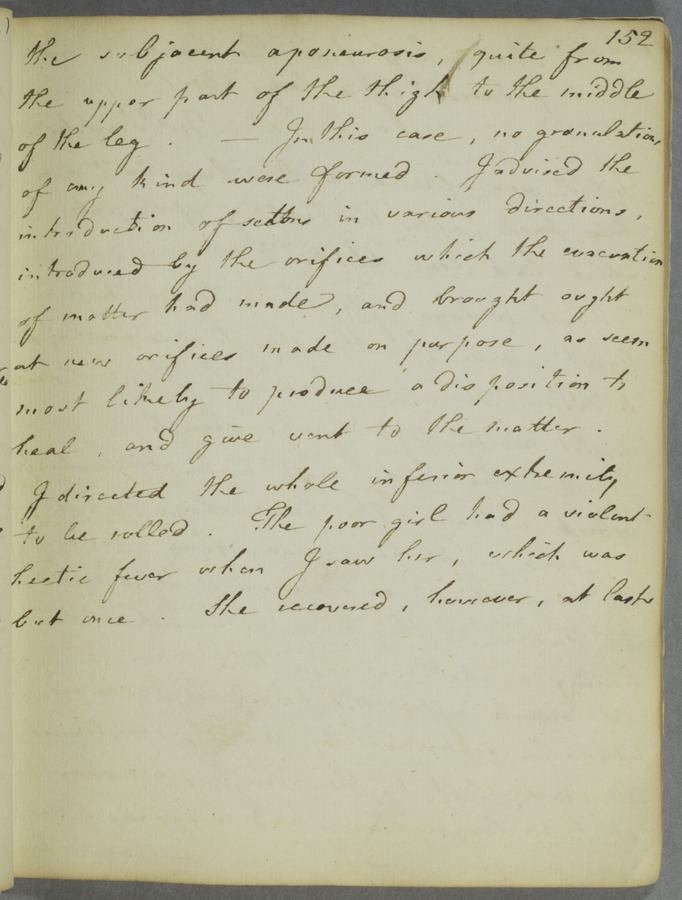 152
the subjacent aponeurosis, quite from
the upper part of the thigh to the middle
of the leg. — In this case, no granulations
of any kind were formed. I advised the
introduction of settons in various directions,
introduced by the orifices which the evacuation
of matter had made, and brought ought
at new orifices made on purpose, as seem
most likely to produce a disposition to
heal, and give vent to the matter.
I directed the whole inferior extremity
to be rolled. The poor girl had a violent
hectic fever when I saw her, which was
but once. She recovered, however, at last